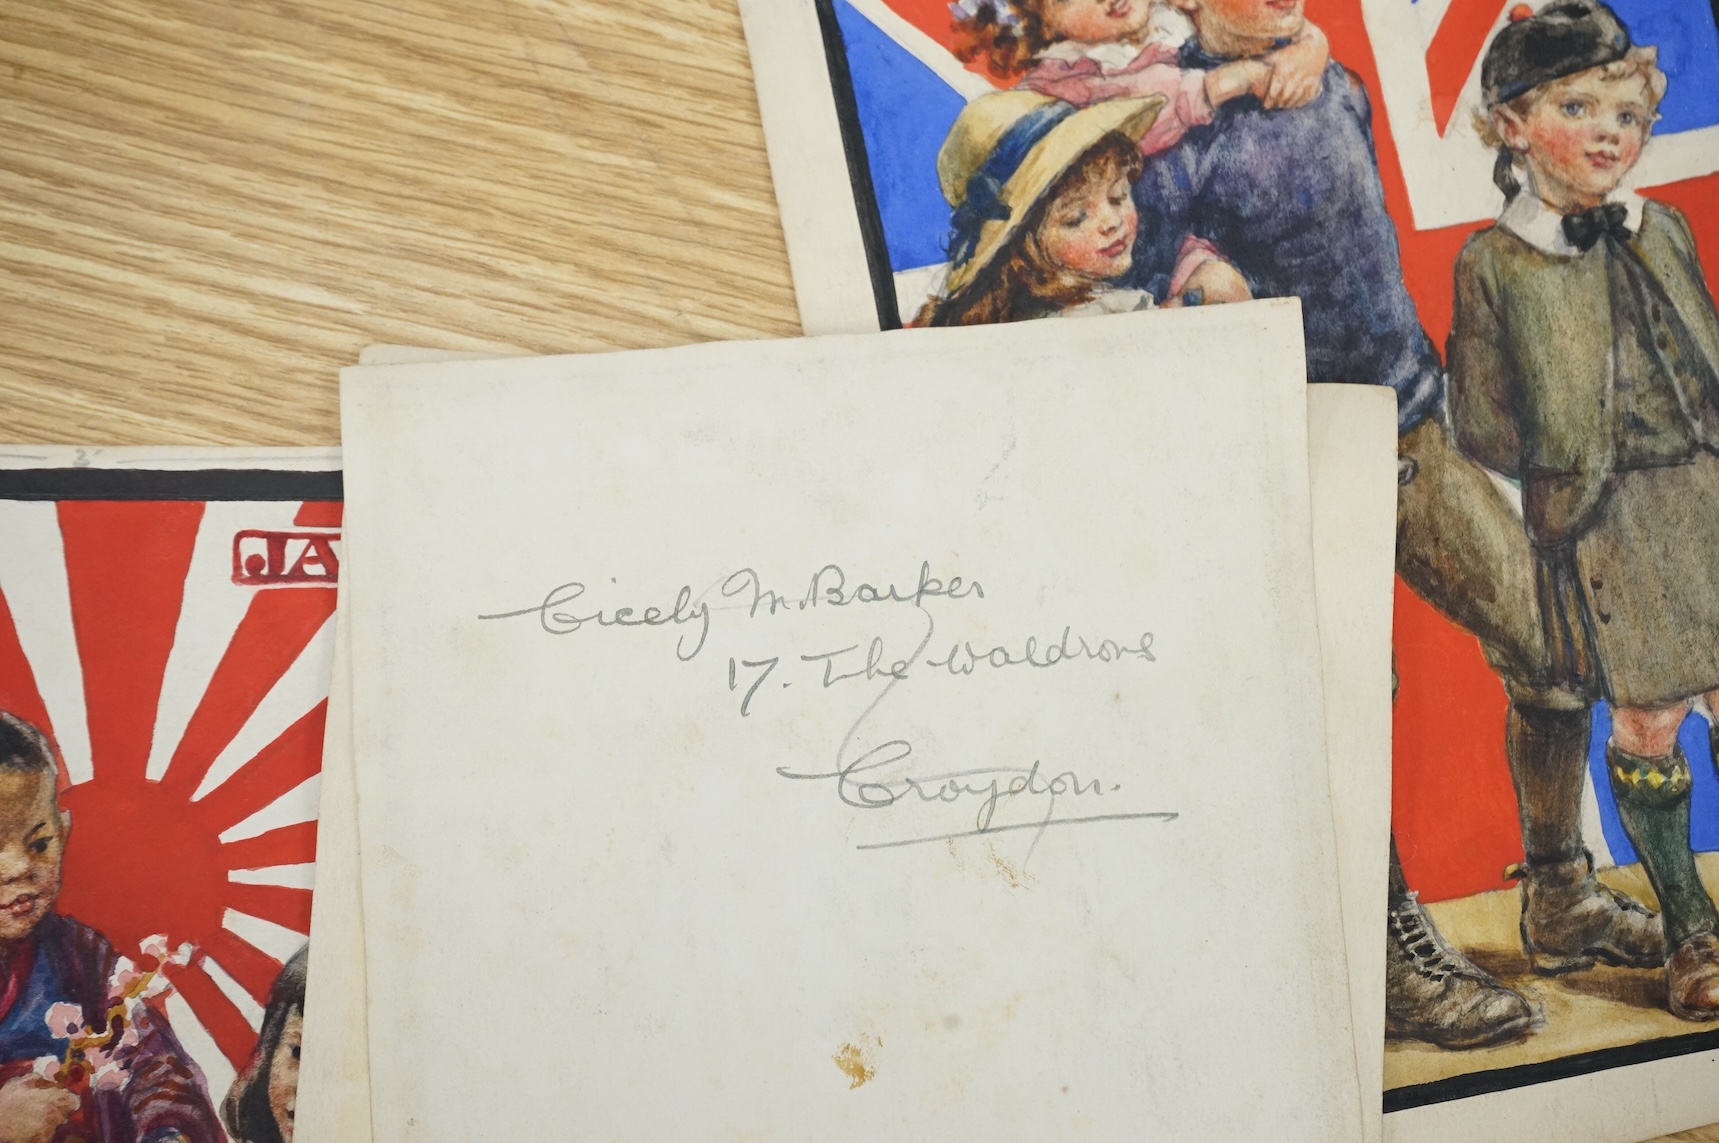 JA
Cicely M. Barker
17. The Waldrons
Croydon.